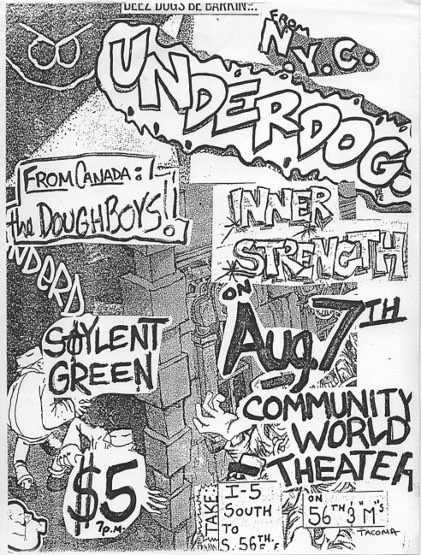 DEEZ DOGS BE BARKIN'...
FROM
N.Y.C.
UNDERDOG.
FROM CANADA:
the DOUGHBOYS!!
INNER
STRENGTH
ON
Aug. 7TH
SOYLENT
GREEN
COMMUNITY
WORLD
THEATER
$5
7P.M.
TAKE:
I-5
SOUTH
TO
S. 56TH.
ON
56TH & "M"'S
TACOMA